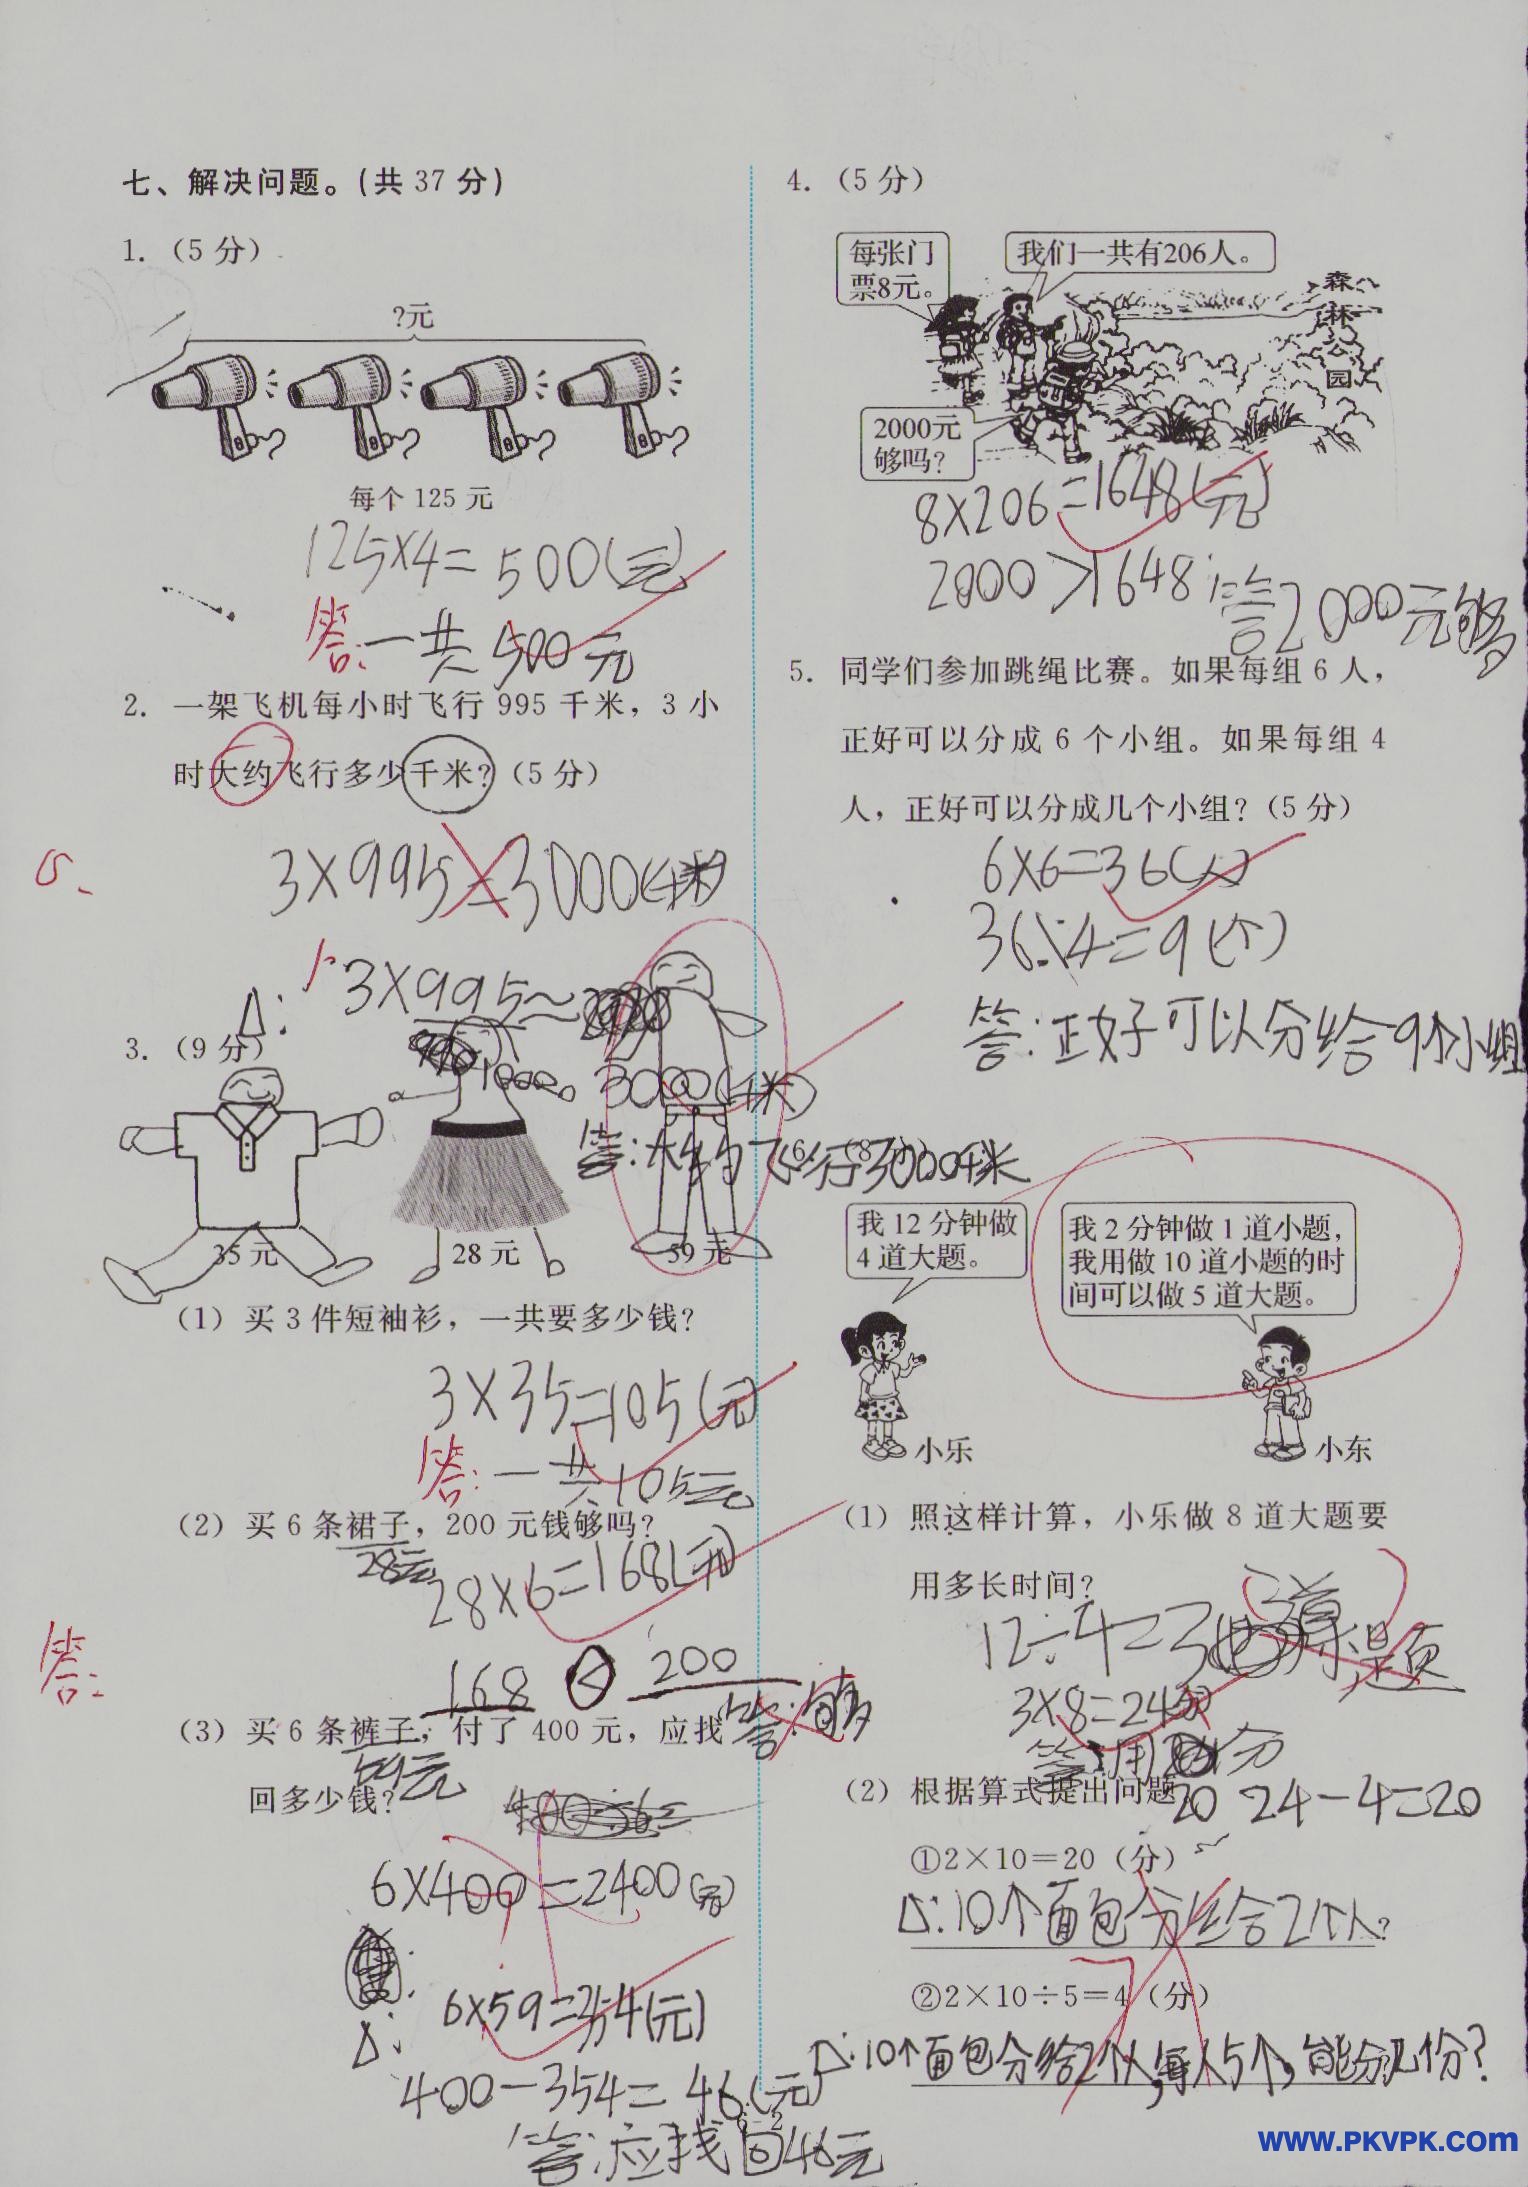 七、解决问题。(共 37 分)
1. (5 分)
?元
每个 125 元
125×4=500(元)
答:一共500元
2. 一架飞机每小时飞行 995 千米，3 小
时大约飞行多少千米?(5 分)
3×995=3000(千米)
3×995≈
3000(千米)
答:大约飞行3000千米
3. (9 分)
35 元
28 元
59 元
(1) 买 3 件短袖衫，一共要多少钱?
3×35=105(元)
答:一共105元
(2) 买 6 条裙子，200 元钱够吗?
28元
28×6=168(元)
168 < 200
答:够
答:
(3) 买 6 条裤子，付了 400 元，应找
59元
回多少钱?
6×400=2400(元)
6×59=354(元)
400-354=46(元)
答:应找回46元
4. (5 分)
每张门
票8元。
我们一共有206人。
森林公园
2000元
够吗?
8×206=1648(元)
2000>1648
答2000元够
5. 同学们参加跳绳比赛。如果每组 6 人，
正好可以分成 6 个小组。如果每组 4
人，正好可以分成几个小组?(5 分)
6×6=36(人)
36÷4=9(个)
答:正好可以分给9个小组
6. (8
我 12 分钟做
4 道大题。
我 2 分钟做 1 道小题，
我用做 10 道小题的时
间可以做 5 道大题。
小乐
小东
(1) 照这样计算，小乐做 8 道大题要
用多长时间?
12÷4=3
3×8=24
答:用
分
(2) 根据算式提出问题
20 24-4=20
①2×10=20 (分)
10个面包分给2个人?
②2×10÷5=4 (分)
10个面包分给2个人,每人5个,能分几份?
6-2
www.PKVPK.com